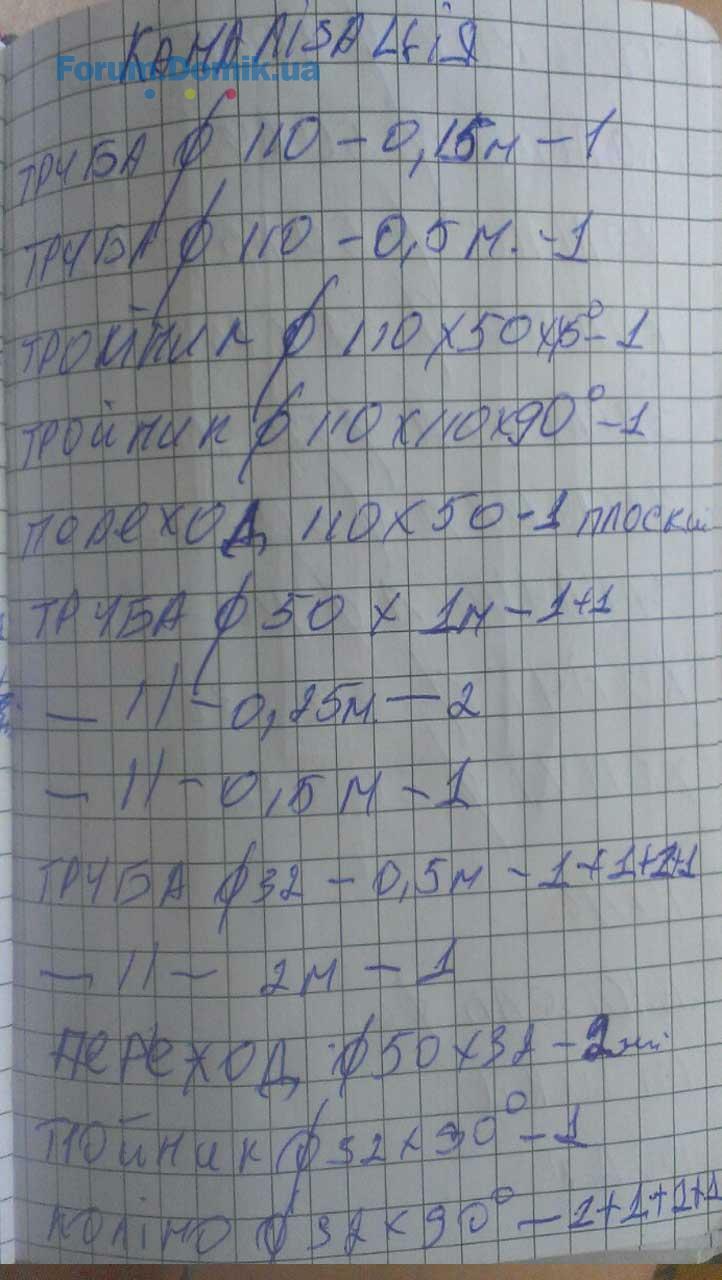 КАНАЛІЗАЦІЯ
Forum.Domik.ua
ТРУБА ф 110 – 0,15м – 1
ТРУБА ф 110 – 0,5 м. – 1
ТРОЙНИК ф 110 х 50 х 45° – 1
ТРОЙНИК ф 110 х 110 х 90° – 1
ПЕРЕХОД 110 х 50 – 1 плоский
ТРУБА ф 50 х 1м – 1+1
— // – 0,25м – 2
— // – 0,5 м – 1
ТРУБА ф 32 – 0,5м – 1+1+1+1
— // – 2м – 1
ПЕРЕХОД ф 50 х 32 – 2
ТРОЙНИК ф 32 х 90° – 1
КОЛІНО ф 32 х 90° – 1+1+1+1